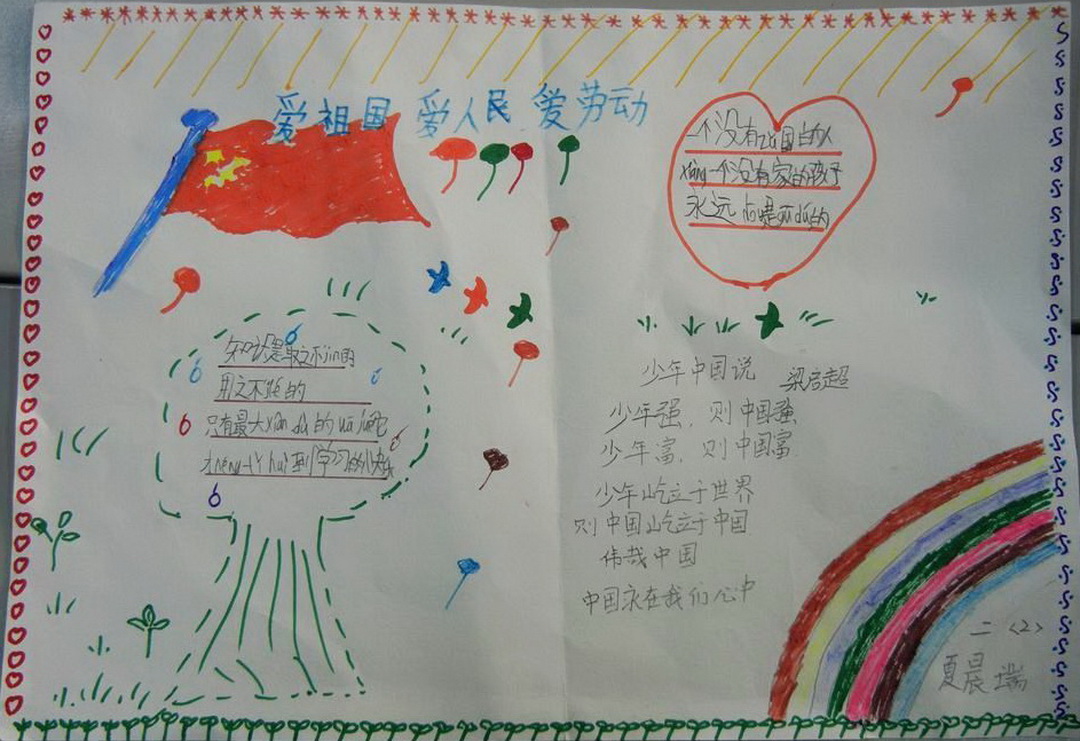 爱祖国 爱人民 爱劳动
一个没有zǔ国的人
xiàng一个没有家的孩子
永远 dōu是gū dú的
知识是取之不jìn的
用之不竭的
只有最大xiàn dù的wā jué它
才néng tǐ huì到学习的快乐
少年中国说 梁启超
少年强，则中国强
少年富，则中国富
少年屹立于世界
则中国屹立于中国
伟哉中国
中国永在我们心中
二〈2〉
夏晨瑞